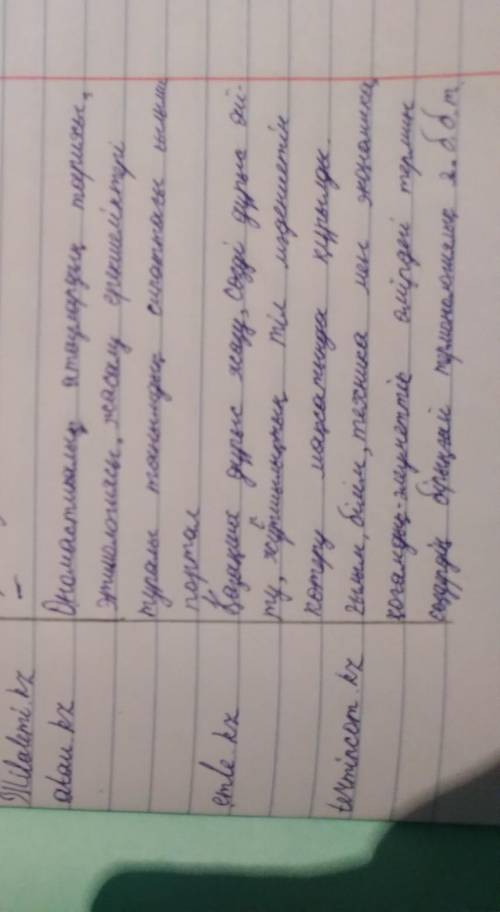 Tilalemi.kz –
atau.kz Ономастикалық атаулардың тарихы,
этимологиясы, жасалу ерекшеліктері
туралы танымдық сипаттағы ғылыми
портал
emle.kz Қазақша дұрыс жазу, сөзді дұрыс ай-
ту, жұртшылықтың тіл мәдениетін
көтеру мақсатында құрылды.
termincom.kz Ғылым, білім, техника мен экономика,
қоғамдық-әлеуметтік өмірдегі термин
сөздердің бірыңғай терминологиялық э.б.б.т.